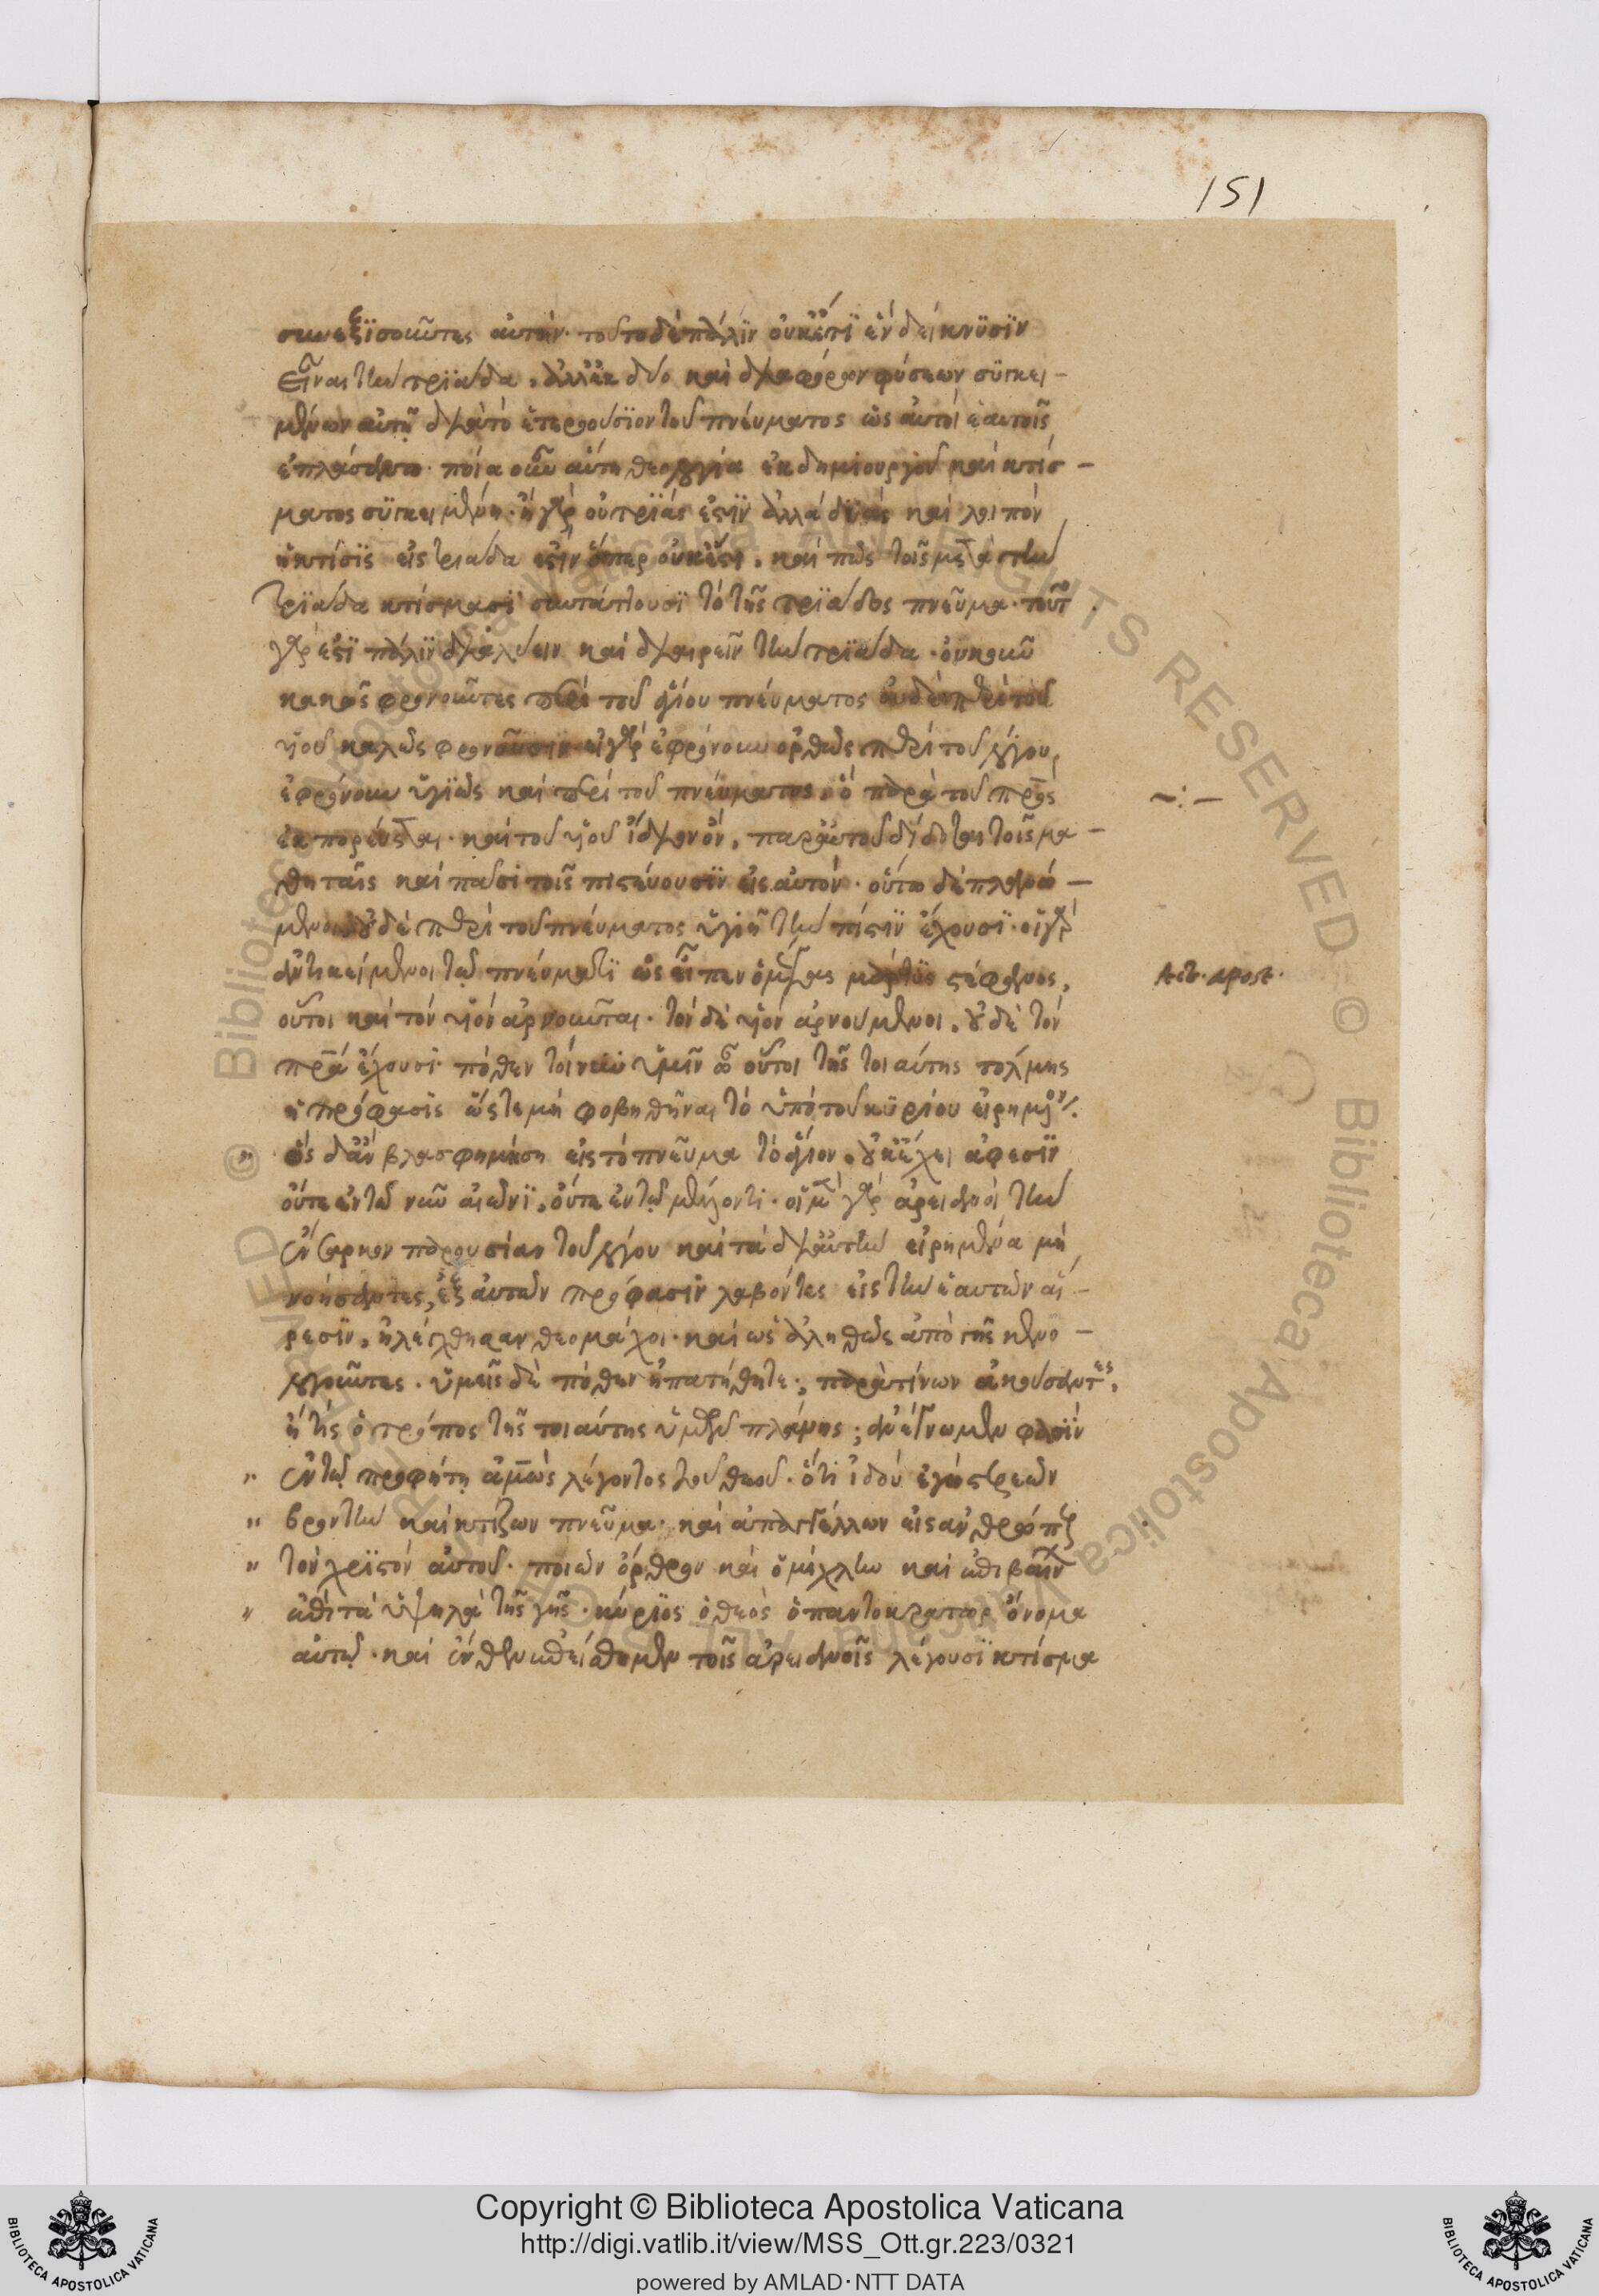 151
συνεξισοῦντες αὐτόν· τοῦτο δὲ πάλιν οὐκέτι ἓν δείκνυσιν
εἶναι τὴν τριάδα, ἀλλ' ἐκ δύο καὶ διαφόρων φύσεων συγκει-
μένων αὐτὴν διὰ τὸ ἑτεροούσιον τοῦ πνεύματος ὡς αὐτοὶ ἑαυτοῖς
ἐπλάσαντο· ποία οὖν αὕτη θεολογία ἐκ δημιουργοῦ καὶ κτίσ-
ματος συγκειμένη· ἢ γὰρ οὐ τριάς ἐστιν ἀλλὰ δυὰς καὶ λοιπὸν
ἡ κτίσις εἰς τριάδα ἐστὶν ὅπερ οὐκ ἔστι. καὶ πῶς τοῖς μετὰ τὴν
τριάδα κτίσμασι συντάττουσι τὸ τῆς τριάδος πνεῦμα· τοῦτο
γάρ ἐστι πάλιν διαλύειν καὶ διαιρεῖν τὴν τριάδα· οὐκοῦν
κακῶς φρονοῦντες περὶ τοῦ ἁγίου πνεύματος οὐδὲ περὶ τοῦ
υἱοῦ καλῶς φρονοῦσιν· εἰ γὰρ ἐφρόνουν ὀρθῶς περὶ τοῦ λόγου,
ἐφρόνουν ὑγιῶς καὶ περὶ τοῦ πνεύματος, ὃ παρὰ τοῦ πρς
ἐκπορεύεται· καὶ τοῦ υἱοῦ ἴδιον ὄν, παρ' αὐτοῦ δίδοται τοῖς μα-
θηταῖς καὶ πᾶσι τοῖς πιστεύουσιν εἰς αὐτόν· οὕτω δὲ πλανώ-
μενοι οὐδὲ περὶ τοῦ πνεύματος ὑγιῆ τὴν πίστιν ἔχουσι· οἱ γὰρ
ἀντικείμενοι τῷ πνεύματι ὡς εἶπεν ὁ μέγας μάρτυς στέφανος,
οὗτοι καὶ τὸν υἱὸν ἀρνοῦνται· τὸν δὲ υἱὸν ἀρνούμενοι, οὐδὲ τὸν
πρα ἔχουσι· πόθεν τοίνυν ὑμῖν ὦ οὗτοι τῆς τοιαύτης τόλμης
ἡ πρόφασις ὥστε μὴ φοβηθῆναι τὸ ὑπὸ τοῦ κυρίου εἰρημένον·
" ὃς δ' ἂν βλασφημήση εἰς τὸ πνεῦμα τὸ ἅγιον, οὐκ ἔχει ἄφεσιν
οὔτε ἐν τῷ νῦν αἰῶνι, οὔτε ἐν τῷ μέλλοντι· οἱ μὲν γὰρ ἀρειανοὶ τὴν
ἔνσαρκον παρουσίαν τοῦ λόγου καὶ τὰ δι' αὐτὴν εἰρημένα μὴ
νοήσαντες, ἐξ αὐτῶν πρόφασιν λαβόντες εἰς τὴν ἑαυτῶν αἵ-
ρεσιν, ἠλέγχθησαν θεομάχοι· καὶ ὡς ἀληθῶς ἀπὸ γῆς κενο-
λογοῦντες. ὑμεῖς δὲ πόθεν ἠπατήθητε; παρὰ τίνων ἀκούσαντες,
ἢ τίς ὁ τρόπος τῆς τοιαύτης ὑμῶν πλάνης; ἀνέγνωμεν φασὶν
" ἐν τῷ προφήτῃ ἀμὼς λέγοντος τοῦ θεοῦ· ὅτι ἰδοὺ ἐγὼ στερεῶν
" βροντὴν καὶ κτίζων πνεῦμα· καὶ ἀπαγγέλλων εἰς ἀνθρώπους
" τὸν χριστὸν αὐτοῦ· ποιῶν ὄρθρον καὶ ὁμίχλην καὶ ἐπιβαίνων
" ἐπὶ τὰ ὑψηλὰ τῆς γῆς· κύριος ὁ θεὸς ὁ παντοκράτωρ ὄνομα
αὐτῷ· καὶ ἔνθεν ἐπείσθημεν τοῖς ἀρειανοῖς λέγουσι κτίσμα
~:–
Act. apost.
Copyright © Biblioteca Apostolica Vaticana
http://digi.vatlib.it/view/MSS_Ott.gr.223/0321
powered by AMLAD·NTT DATA
BIBLIOTECA APOSTOLICA VATICANA
BIBLIOTECA APOSTOLICA VATICANA